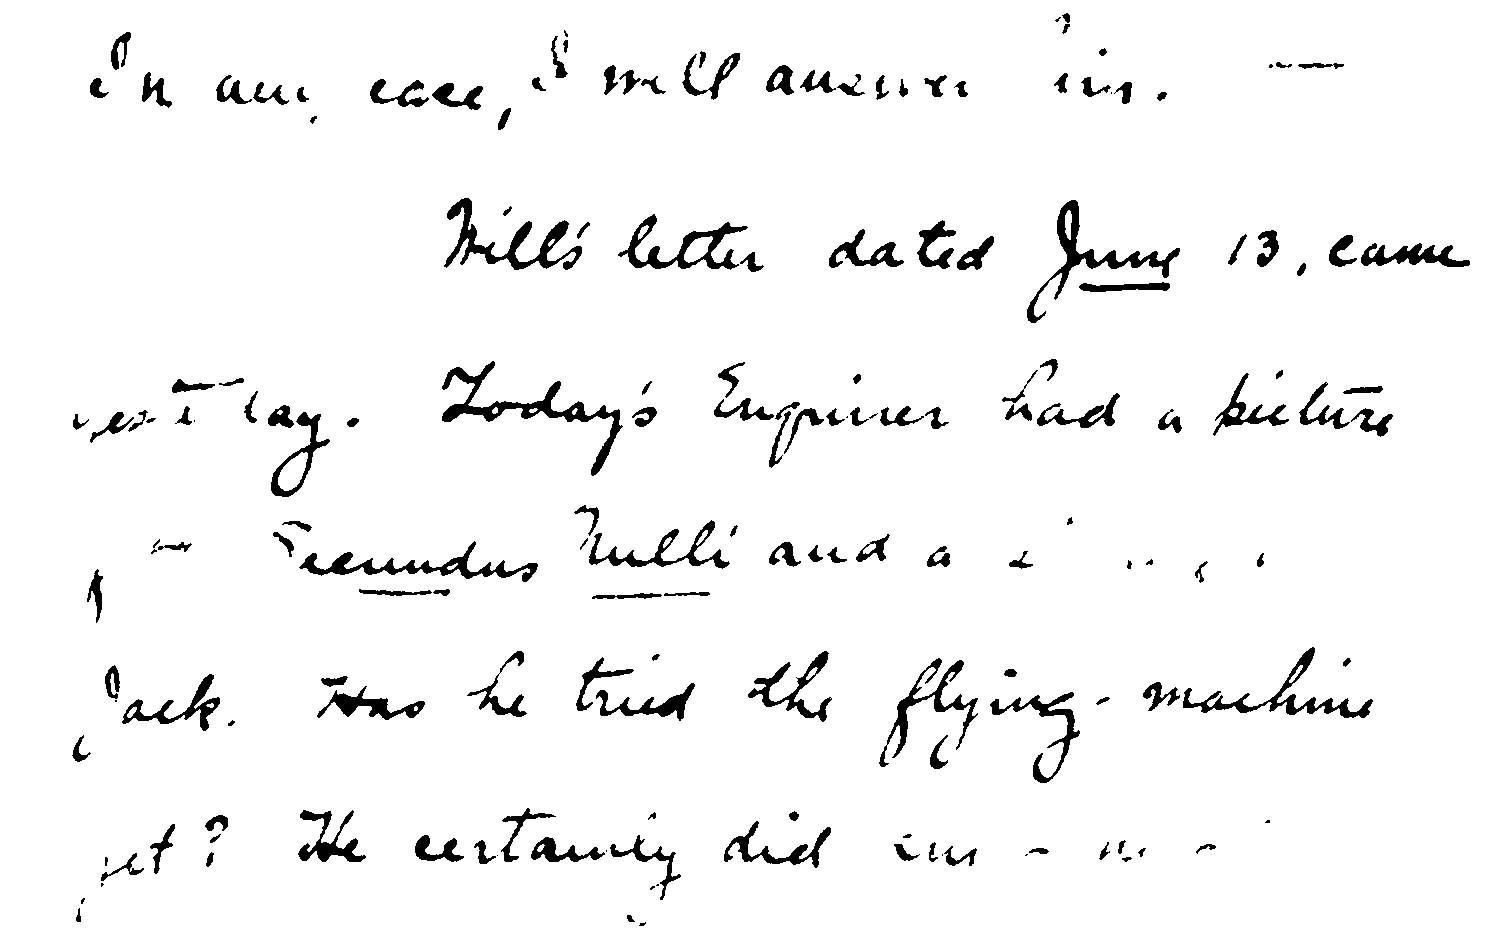 In any case, I will answer him. —
Will's letter dated June 13, came
yesterday. Today's Enquirer had a picture
Secundus Nulli and a
Jack. Has he tried the flying-machine
yet? He certainly did